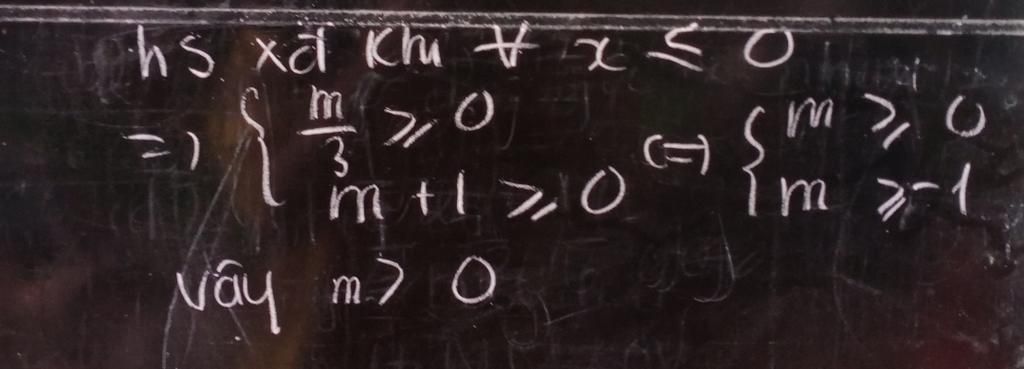 hs xđ khi ∀ x ≤ 0
=> { m/3 ≥ 0 <=> { m ≥ 0
m + 1 ≥ 0 m ≥ -1
vây m > 0